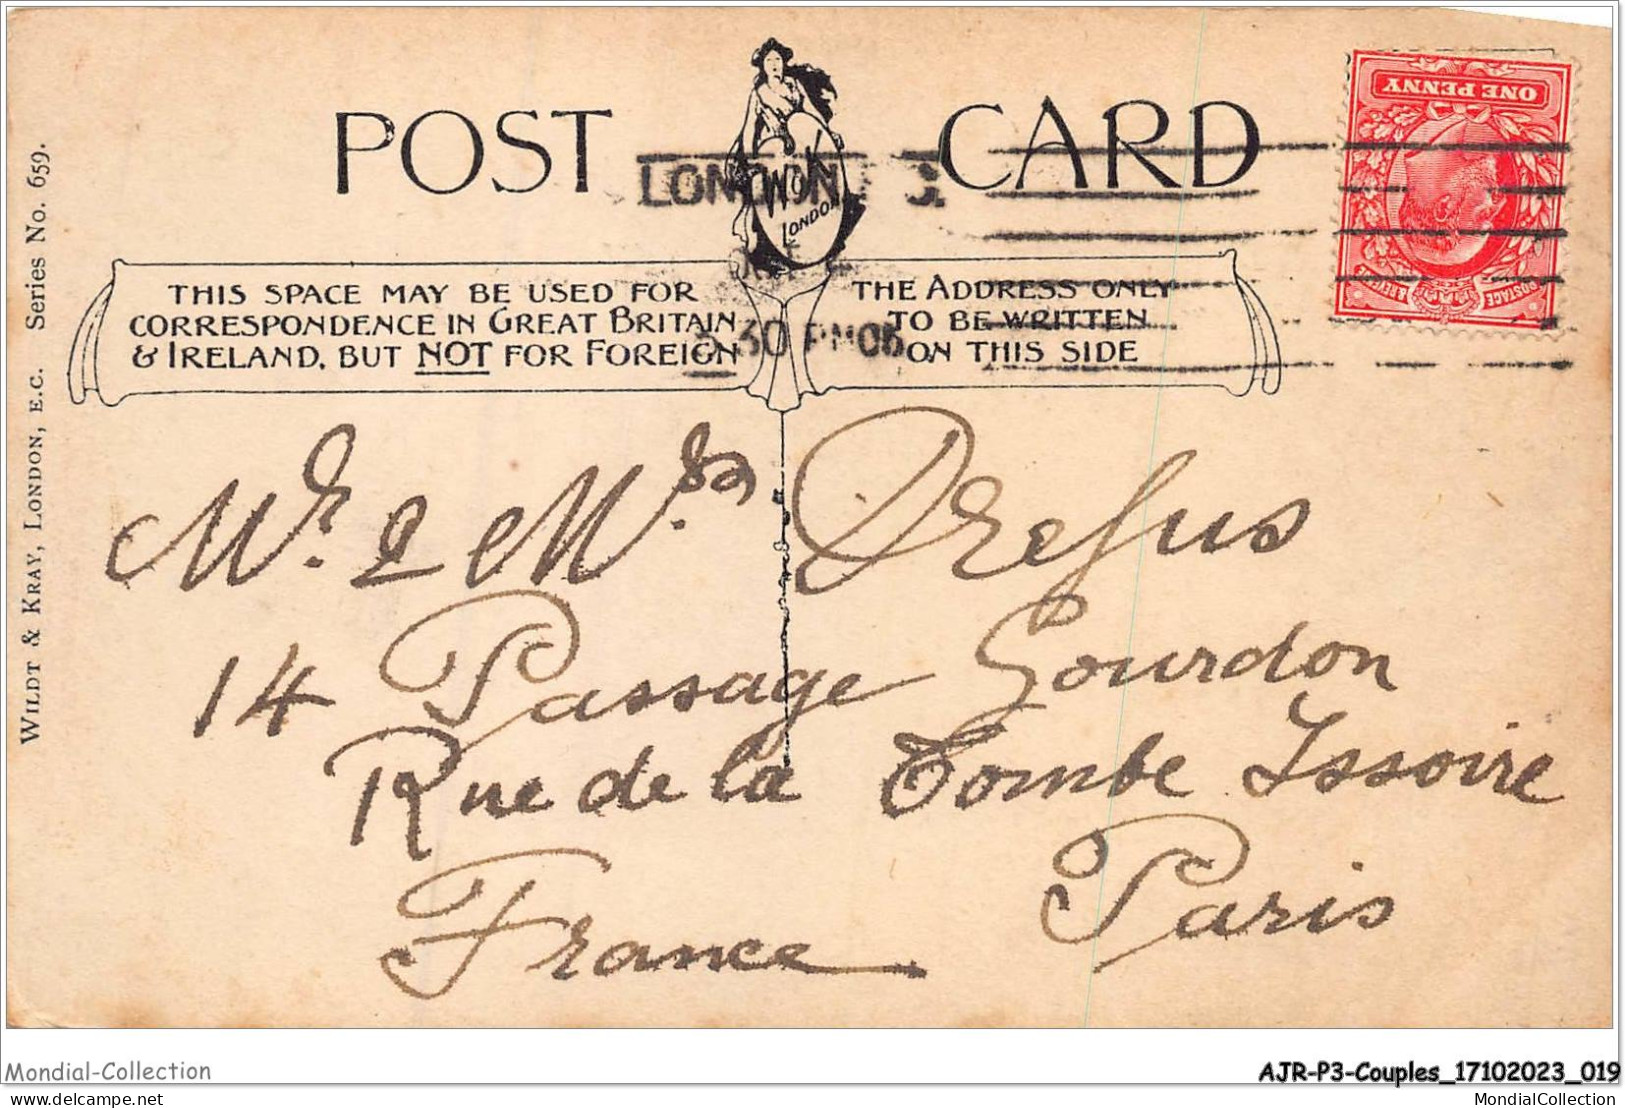 POST CARD
W & K
LONDON
LONDON
5.30 PM 06
ONE PENNY
POSTAGE & REVENUE
THIS SPACE MAY BE USED FOR
CORRESPONDENCE IN GREAT BRITAIN
& IRELAND, BUT NOT FOR FOREIGN
THE ADDRESS ONLY
TO BE WRITTEN
ON THIS SIDE
WILDT & KRAY, LONDON, E.C. Series No. 659.
Mr. & Mrs. Drefus
14 Passage Gourdon
Rue de la Tombe Issoire
Paris
France
Mondial-Collection
delcampe.net
AJR-P3-Couples_17102023_019
MondialCollection